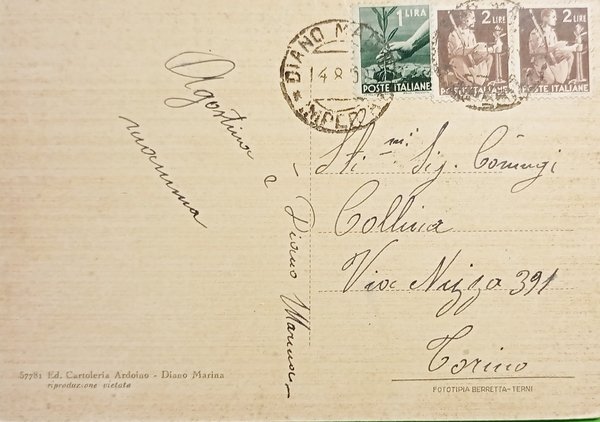 1 LIRA
POSTE ITALIANE
2 LIRE
POSTE ITALIANE
2 LIRE
POSTE ITALIANE
DIANO MA
14 8
IMPER
Agostina e
mamma
- Diano Marina -
Sti.mi Sig. Coniugi
Collina
Via Nizza 391
Torino
57781 Ed. Cartoleria Ardoino - Diano Marina
riproduzione vietata
FOTOTIPIA BERRETTA-TERNI